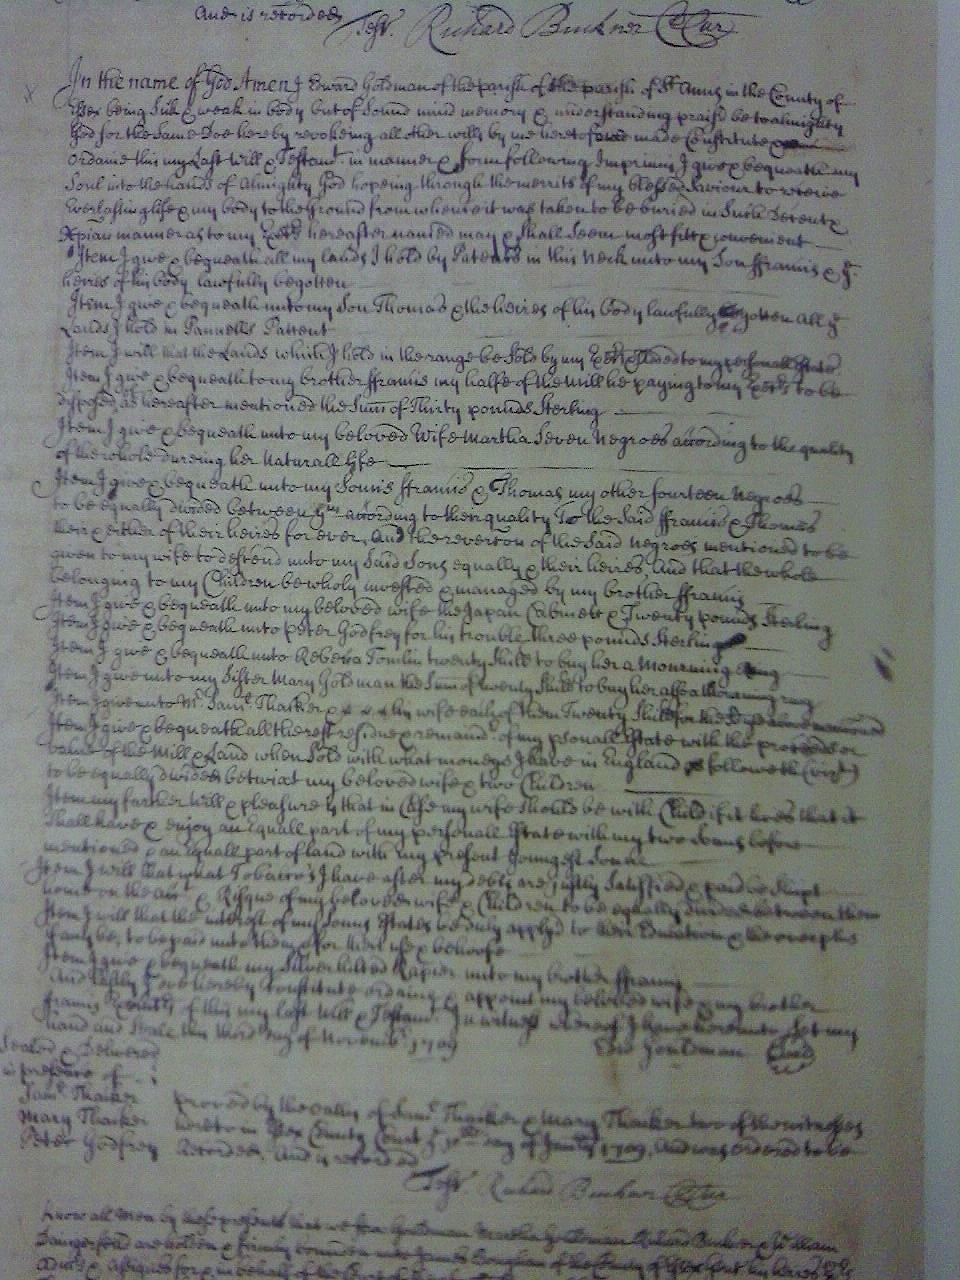 And is recorded
Test. Richard Buckner Cl Cur
In the name of God Amen I Edward Goldman of the parish of the parish of St Anns in the County of
Essex being Sick & weak in body but of Sound mind memory & understanding praised be to almighty
God for the Same Doe hereby revokeing all other wills by me heretofore made Constitute
Ordaine this my Last Will & Testamt. in manner & form following Imprimis I give & bequeath my
Soul into the hands of Almighty God hopeing through the merrits of my blessed Saviour to receive
Everlasting life & my body to the Ground from whence it was taken to be buried in Such Decent &
Xpian manner as to my Exrs hereafter named may & Shall Seem most fitt & convenient
Item I give & bequeath all my Lands I hold by Patents in this Neck unto my Son ffrancis & ye
heires of his body lawfully begotten
Item I give & bequeath unto my Son Thomas & the heires of his body lawfully begotten all ye
Lands I hold in Pannells Pattent
Item I will that the Lands which I hold in the range be Sold by my Exrs & added to my personall Estate
Item I give & bequeath to my brother ffrancis my halfe of the Mill he paying to my Exrs to be
disposed as hereafter mentioned the Sum of Thirty pounds Sterling
Item I give & bequeath unto my beloved Wife Martha Seven Negroes according to the quality
of the whole dureing her Naturall life
Item I give & bequeath unto my Sonns ffrancis & Thomas my other fourteen Negroes
to be equally divided between ym according to their quality To the Said ffrancis & Thomas
their & either of their heires for ever, And the reverson of the Said Negroes mentioned to be
given to my wife to descend unto my Said Sons equally & their heires, And that the whole
belonging to my Children be wholy invested & managed by my brother ffrancis
Item I give & bequeath unto my beloved wife the Japan Cabinett & Twenty pounds Sterling
Item I give & bequeath unto Peter Godfrey for his trouble three pounds Sterling
Item I give & bequeath unto Rebecca Tomlin twenty Shills to buy her a Mourning Ring
Item I give unto my Sister Mary Goldman the Sum of twenty Shills to buy her a Mourning ring
Item I give unto Mr. Saml. Thacker & his wife each of them Twenty Shills for the
Item I give & bequeath all the rest residue & remaindr of my psonall Estate with the proceeds or
value of the Mill & Land when Sold with what moneys I have in England as followeth (vizt)
to be equally divided betwixt my beloved wife & two Children
Item my farther Will & pleasure is that in Case my wife Should be with Child if it lives that it
Shall have & enjoy an Equall part of my personall Estate with my two Sonns before
mentioned & an Equall part of land with my present youngest Sonn
Item I will that what Tobacco's I have after my debts are justly Satisfied & paid be Shipt
home on the acct & Risque of my beloved wife & Children to be equally divided between them
Item I will that the interest of my Sonns Estates be duly applyd to their Education & the overplus
if any be, to be paid unto them for their use & behoofe
Item I give & bequeath my Silver hilted Rapier unto my brother ffrancis
And lastly I doe hereby Constitute ordaine & appoint my beloved wife & my brother
ffrancis Execultrs of this my last Will & Testamt. In witness whereof I have hereunto Set my
hand and Seale this day of Novembr. 1709
Sealed & Delivered Edwd Gouldman
in presence of
Saml. Thacker proved by the oathes of Saml. Thacker & Mary Thacker two of the witnesses
Mary Thacker hereto in Essex County Court ye day of 1709, And was ordered to be
Peter Godfrey recorded. And is recorded
Test. Richard Buckner Cl Cur
Know all Men by these presents that we Goldman Martha Goldman Richard Buckner & William
Daingerfield are holden & firmly bound unto of the County of Essex